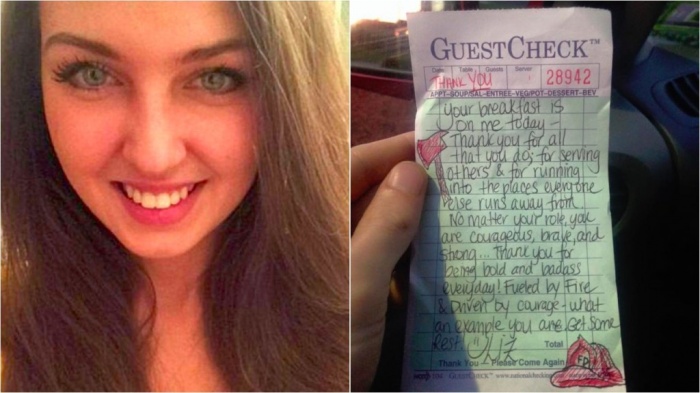 GUESTCHECK™
Date Table Guests Server
THANK YOU
28942
APPT-SOUP/SAL-ENTREE-VEG/POT-DESSERT-BEV
Your breakfast is
on me today -
Thank you for all
that you do; for serving
others & for running
into the places everyone
else runs away from.
No matter your role, you
are courageous, brave, and
strong... Thank you for
being bold and badass
everyday! Fueled by Fire
& Driven by courage - what
an example you are. Get some
Rest! Liz
Total
FD
Thank You — Please Come Again
GUESTCHECK™